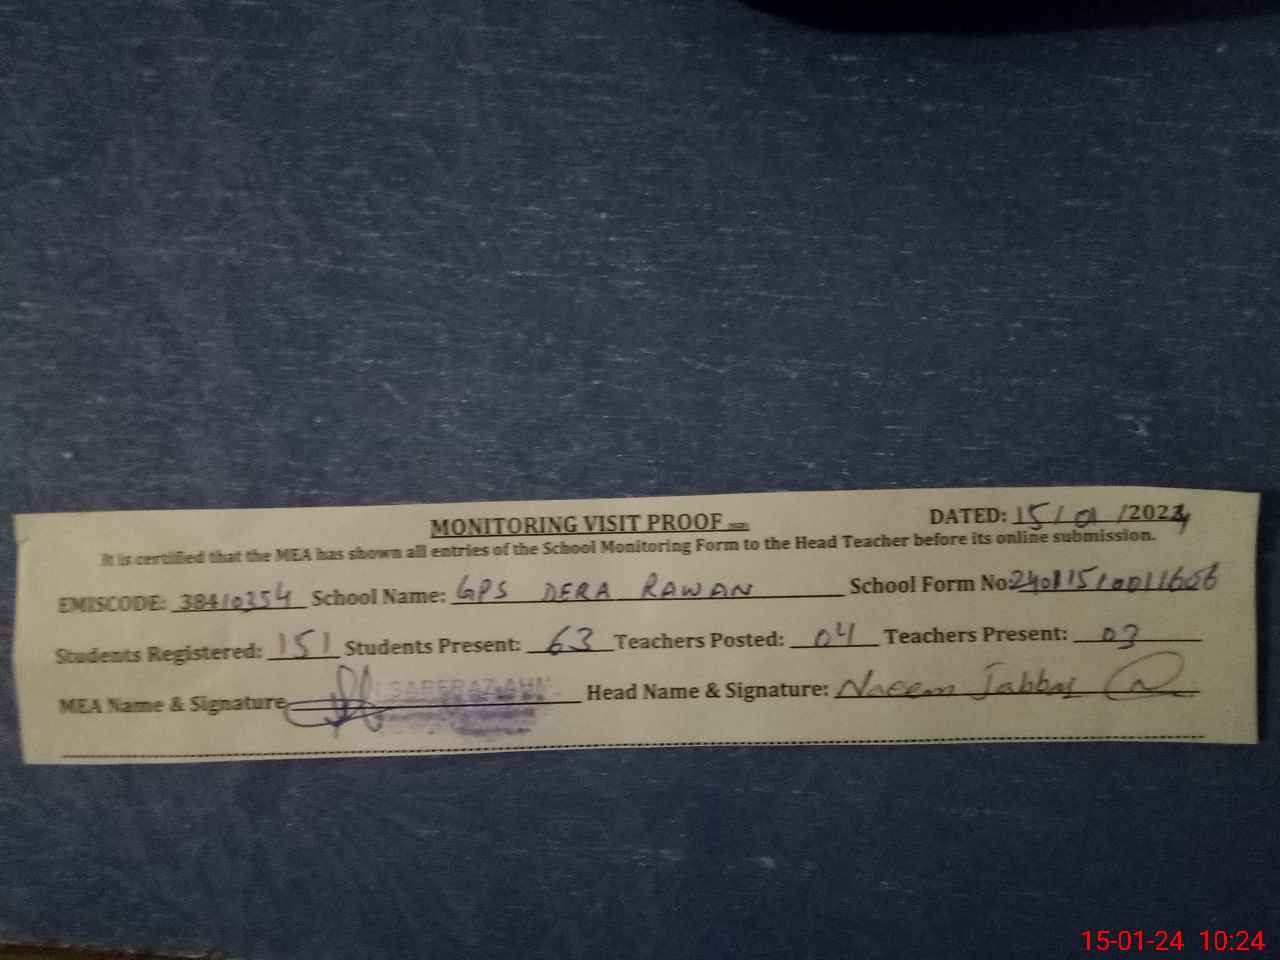 MONITORING VISIT PROOF DATED: 15/01/2024
It is certified that the MEA has shown all entries of the School Monitoring Form to the Head Teacher before its online submission.
EMISCODE: 38410354 School Name: GPS DERA RAWAN School Form No:
Students Registered: 151 Students Present: 63 Teachers Posted: 04 Teachers Present: 03
MEA Name & Signature Head Name & Signature: Naeem Jabbar
15-01-24 10:24